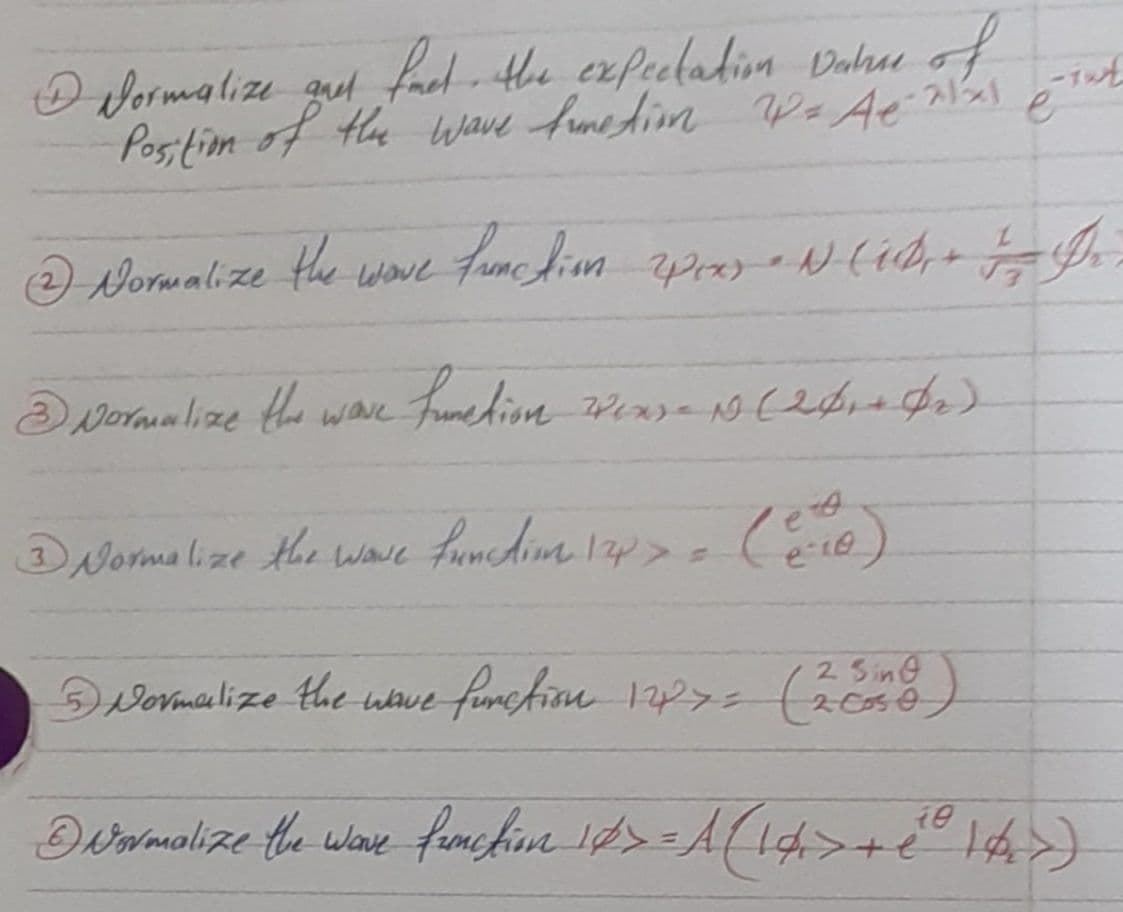 ① Normalize and find. the expectation Value of
Position of the wave function ψ = Ae^-λ|x| e^-iωt
② Normalize the wave function ψ(x) = N (iϕ₁ + 1/√3 ϕ₂
③ Normalize the wave function ψ(x) = N (2ϕ₁ + ϕ₂)
③ Normalize the wave function |ψ> = (e^iθ
e^-iθ)
⑤ Normalize the wave function |ψ> = (2 Sinθ
2 Cosθ)
⑥ Normalize the wave function |ϕ> = A(|ϕ₁> + e^iθ |ϕ₂>)